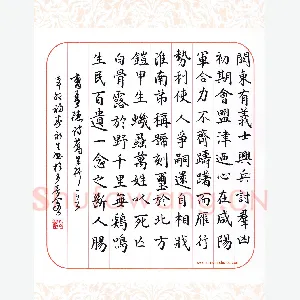 関東有義士興兵討羣凶
初期會盟津迺心在咸陽
軍合力不齊躊躇而雁行
勢利使人爭嗣還自相戕
淮南弟稱號刻璽於北方
鎧甲生蟣蝨萬姓以死亡
白骨露於野千里無雞鳴
生民百遺一念之斷人腸
曹孟德詩蒿里行